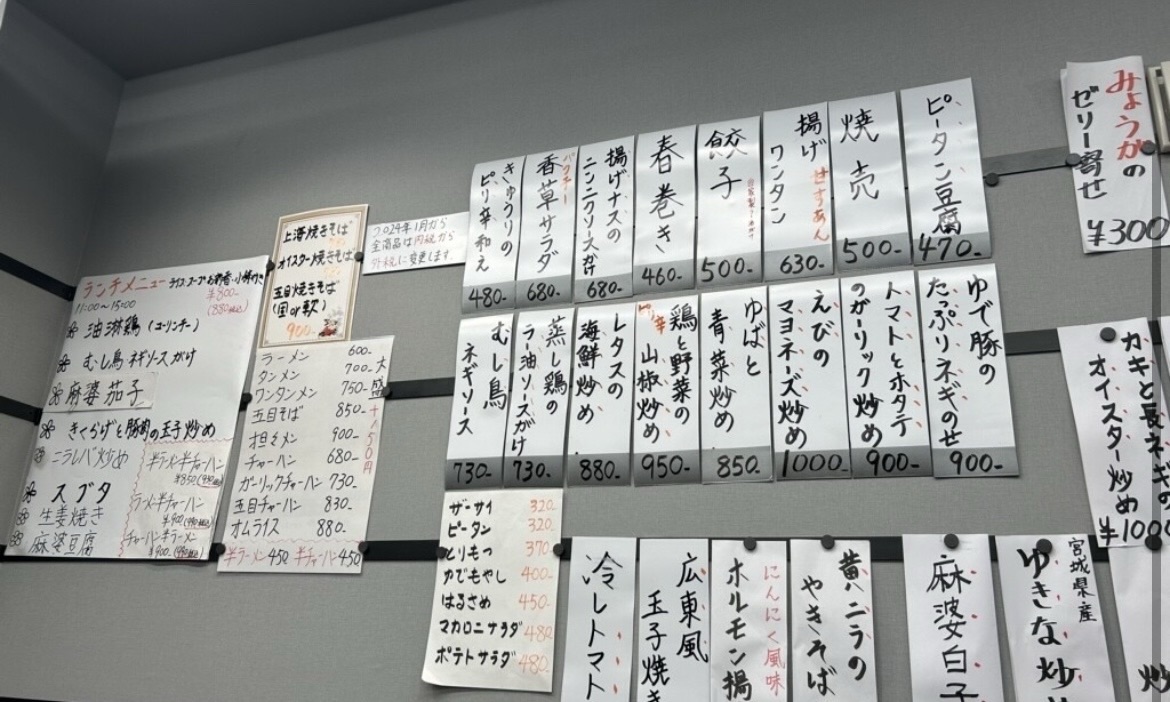 ランチメニュー ライス.スープ.お新香.小鉢付き
11:00〜15:00
¥800-
(880税込)
油淋鶏(ユーリンチー)
むし鳥ネギソースがけ
麻婆茄子
きくらげと豚肉の玉子炒め
ニラレバ炒め
スブタ
生姜焼き
麻婆豆腐
半ラーメン半チャーハン
¥850
ラーメン半チャーハン
¥900
チャーハン半ラーメン
¥900
上海焼きそば
オイスター焼きそば
五目焼きそば
(固or軟)
900-
2024年1月から
全商品は内税から
外税に変更します.
ラーメン 600-
タンメン 700-
ワンタンメン 750-
五目そば 850-
担々メン 900-
チャーハン 680-
ガーリックチャーハン 730-
五目チャーハン 830-
オムライス 880-
大盛+150円
半ラーメン450 半チャーハン450
きゅうりの
ピリ辛和え
480-
パクチー
香草サラダ
680-
揚げナスの
ニンニクソースがけ
680-
春巻き
460-
餃子
500-
揚げ
ワンタン
630-
焼売
500-
ピータン豆腐
470-
みょうがの
ゼリー寄せ
¥300
むし鳥
ネギソース
730-
蒸し鶏の
ラー油ソースがけ
730-
レタスの
海鮮炒め
880-
ピリ辛
鶏と野菜の
山椒炒め
950-
ゆばと
青菜炒め
850-
えびの
マヨネーズ炒め
1000-
トマトとホタテ
のガーリック炒め
900-
ゆで豚の
たっぷりネギのせ
900-
カキと長ネギの
オイスター炒め
ザーサイ 320-
ピータン 320-
とりもつ 370-
ゆでもやし 400-
はるさめ 450-
マカロニサラダ 480
ポテトサラダ 480-
冷しトマト
広東風
玉子焼き
にんにく風味
ホルモン揚
黄ニラの
やきそば
麻婆白子
宮城県産
ゆきな炒め
炒